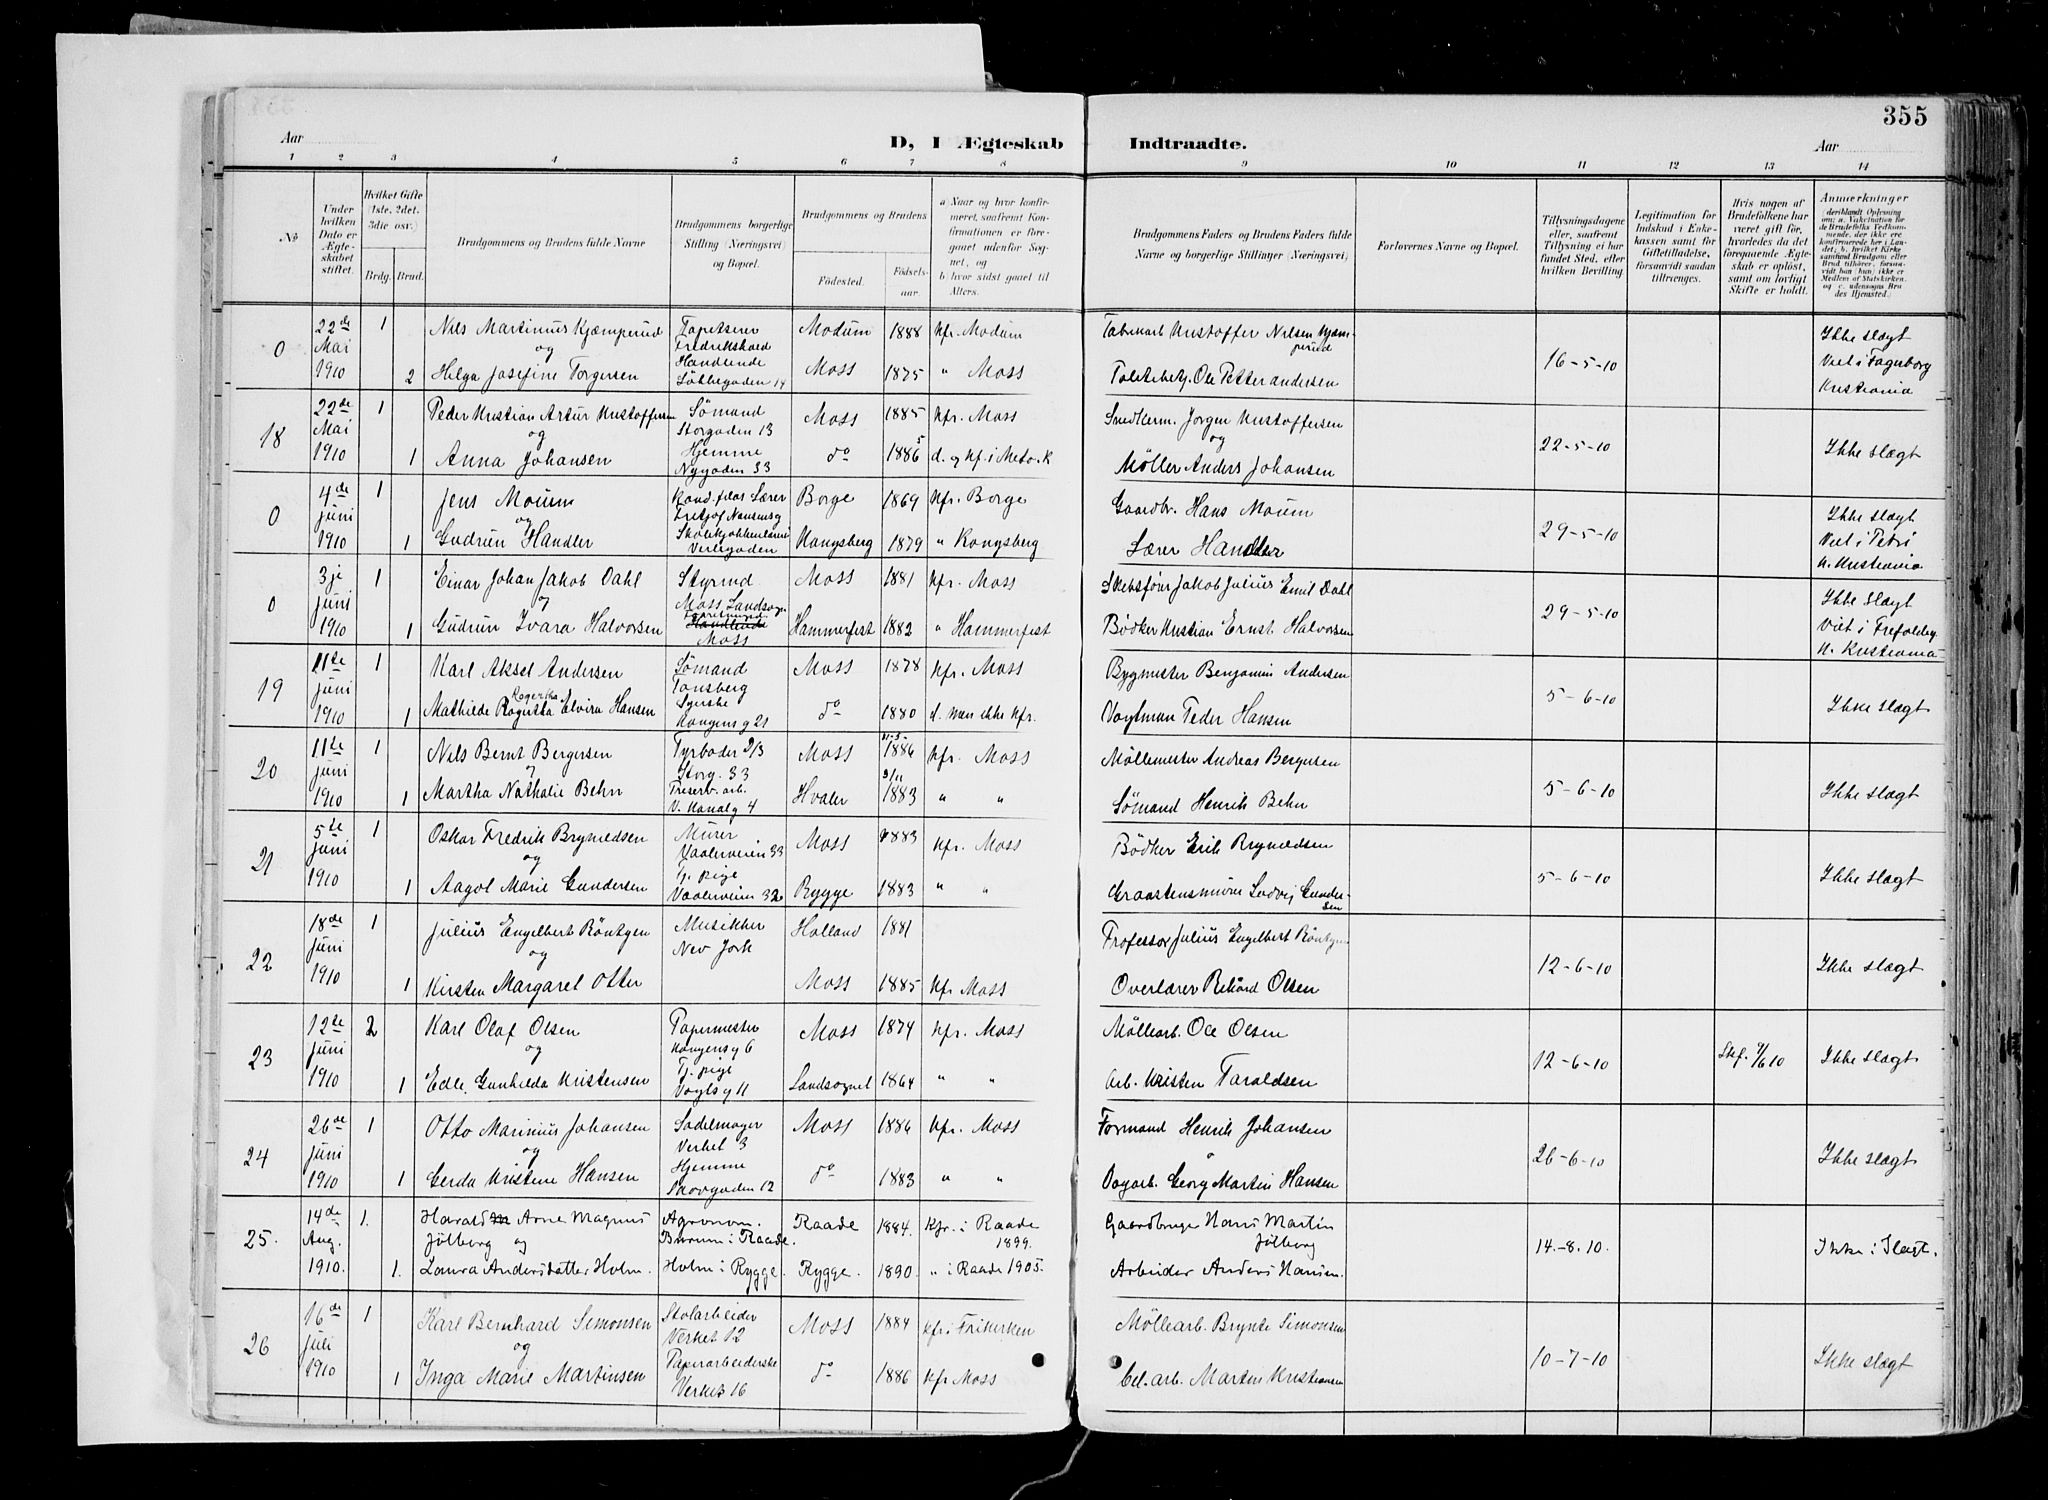 355
Aar
D, I Ægteskab
Indtraadte.
Aar
1 2 3 4 5 6 7 8 9 10 11 12 13 14
No
Under hvilken Dato er Ægteskabet stiftet.
Hvilket Gifte (1ste, 2det. 3die osv.)
Brdg. Brud.
Brudgommens og Brudens fulde Navne
Brudgommens borgerlige Stilling (Næringsvei) og Bopæl.
Brudgommens og Brudens
Fødested.
Fødselsaar.
a) Naar og hvor konfirmeret, saafremt Konfirmationen er foregaaet udenfor Sognet, og
b) hvor sidst gaaet til Alters.
Brudgommens Faders og Brudens Faders fulde Navne og borgerlige Stillinger (Næringsvei)
Forlovernes Navne og Bopæl.
Tillysningsdagene eller, saafremt Tillysning ei har fundet Sted, efter hvilken Bevilling
Legitimation for Indskud i Enkekassen samt for Giftetilladelse, forsaavidt saadan tiltrænges.
Hvis nogen af Brudefolkene har været gift før, hvorledes da det foregaaende Ægteskab er opløst, samt om lovligt Skifte er holdt.
Anmerkninger
0 22de Mai 1910 1 Nils Martinius Kjæmperud Tapetserer Fredrikstad Modum 1888 kfr. Modum Kristoffer Nilsen Kjæmperud 16-5-10 Ikke slægt
og
2 Helga Josefine Torgersen Handlende 14 Moss 1875 " Moss Ole Petter Andersen Viet i Fagerborg Kristiania
18 22de Mai 1910 1 Peder Kristian Artur Kristoffersen Sømand Storgaden 13 Moss 1885 kfr. Moss Jørgen Kristoffersen 22-5-10 Ikke slægt
og
1 Anna Johansen Hjemme Nygaden 33 do 1886 5 d. og kf. i Meto.k Møller Anders Johansen
0 4de Juni 1910 1 Jens Moum Lærer Fritjof Nansensg Borge 1869 kfr. Borge Gaardbr. Hans Moum 29-5-10 Ikke slægt
og
1 Gudrun Handler Verlegaden Kongsberg 1879 " Kongsberg Lærer Handler Viet i Petri k. Kristiania
0 3je Juni 1910 1 Einar Johan Jakob Dahl Styrmd Moss Landsogn Moss 1881 kfr. Moss Skibsfører Jakob Julius Emil Dahl 29-5-10 Ikke slægt
og
1 Gudrun Ivara Halvorsen Handlende Moss Hammerfest 1882 " Hammerfest Bødker Kristian Ernst Halvorsen Viet i k. Kristiania
19 11te Juni 1910 1 Karl Aksel Andersen Sømand Tønsberg Moss 1878 kfr. Moss Bygmester Benjamin Andersen 5-6-10 Ikke slægt
1 Mathilde Elvira Hansen Syerske Kongensg 21 do 1880 d. men ikke kfr. Peder Hansen
20 11te Juni 1910 1 Nils Bernt Bergersen Fyrbøder Storg. 33 Moss 1886 kfr. Moss Møllemester Andreas Bergersen 5-6-10 Ikke slægt
og
1 Martha Nathalie Behn V. Kanalg 4 Hvaler 9/11 1883 " " Sømand Henrik Behn
21 5te Juni 1910 1 Oskar Fredrik Brynildsen Murer Vaalerveien 33 Moss 1883 kfr. Moss Bødker Erik Brynildsen 5-6-10 Ikke slægt
og
1 Aagot Marie Gundersen Tj. pige Vaalerveien 32 Rygge 1883 " " Graastensmurer Ludvig Gundersen
22 18de Juni 1910 1 Julius Engelbert Röntgen Musikker Nev Jork Holland 1881 Professor Julius Engelbert Röntgen 12-6-10 Ikke slægt
og
1 Kirsten Margaret Otter Moss 1885 kfr Moss Overlærer Rikard Olsen
23 12te Juni 1910 2 Karl Olaf Olsen Papermester Kongensg 6 Moss 1874 kfr. Moss Møllearb. Ole Olsen 12-6-10 Skf. 7/6 10 Ikke slægt
og
1 Edle. Gunhilda Kristensen Tj. pige Vogtsg 11 Landsognet 1864 " " Arb. Kristen Taraldsen
24 26de Juni 1910 1 Otto Marinius Johansen Sadelmager Verket 3 Moss 1886 kfr. Moss Formand Henrik Johansen 26-6-10 Ikke slægt
og
1 Gerda Kristine Hansen Hjemme Skovgaden 12 do 1883 " " Dagarb. Georg Martin Hansen
25. 14de Aug. 1910. 1. Harald Arne Magnus Jølberg og Agronom. Burum i Raade. Raade 1884. Kfr. i Raade 1899. Gaardbruger Hans Martin Jølberg 14.-8.10. Ikke i Slegt.
1. Laura Andersdatter Holm. Holm i Rygge. Rygge. 1890. " i Raade 1905. Arbeider Anders Hansen.
26 16de Juli 1910 1 Karl Bernhard Simonsen Stolarbeider Verket 12 Moss 1884 kfr. i Frikirken Møllearb. Brynte Simonsen 10-7-10 Ikke slægt
og
1 Inga Marie Martinsen Papirarbeiderske Verket 16 do 1886 kfr Moss Cel. arb. Martin Kristiansen